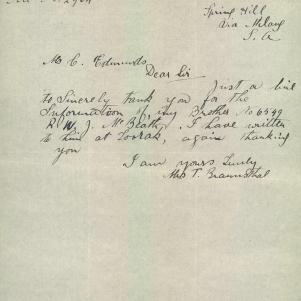 Spring Hill
Via Milang
S. A
Mr C. Edmunds
Dear Sir
Just a line
to Sincerely tank you for the
Information of my Brother No 6549
R. W. J. McBeath, I have written
to him at Toorak, again thanking
you
I am yours Truly
Mrs T. Braunsthal